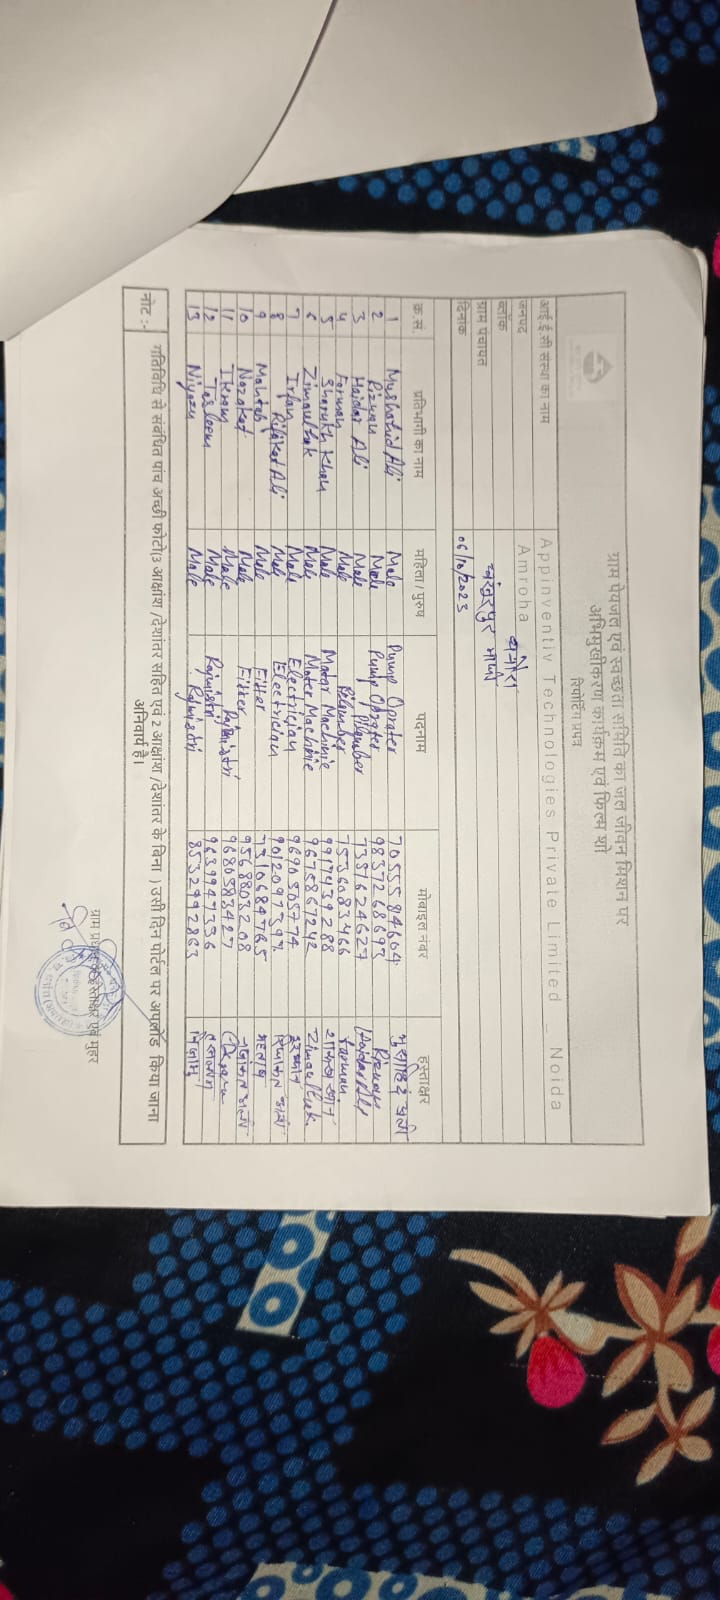 ग्राम पेयजल एवं स्वच्छता समिति का जल जीवन मिशन पर
अभिमुखीकरण कार्यक्रम एवं फिल्म शो
रिपोर्टिंग प्रपत्र
आई ई सी संस्था का नाम Appinventiv Technologies Private Limited _ Noida
जनपद Amroha
ब्लॉक
ग्राम पंचायत
दिनांक
क्र.सं प्रतिभागी का नाम महिला / पुरुष पदनाम मोबाइल नंबर हस्ताक्षर
1 Mushahid Ali Male Pump Oprater 7055584604
2 Rizwan Male Pump Oprater 9837268697 Rizwan
3 Haidar Ali Male Plamber 7351624627 Haidar Ali
4 Farman Male Plamber 7536083466 Farman
5 Sharukh Khan Male Motar Machinie 9917439288 शाहरुख खान
6 Male Motar Machinie 9675867242
7 Irfan Male Electrician 9690505774 इरफान
8 Riyakat Ali Male Electrician 9012097397
9 Mahtab Male Fitter 7310684765 महताब
10 Nazakat Male Fitter 9568803208 नजाकत अली
11 Ikram Male Rajmistri 9680583427
12 Tasleem Male Rajmistri 9639947336 तसलीम
13 Male Rajmistri 8532992863
नोट :- गतिविधि से संबंधित पांच अच्छी फोटो3 आक्षांश /देशांतर सहित एवं 2 आक्षांश /देशांतर के बिना । उसी दिन पोर्टल पर अपलोड किया जाना
अनिवार्य है।
ग्राम प्रधान के हस्ताक्षर एवं मुहर